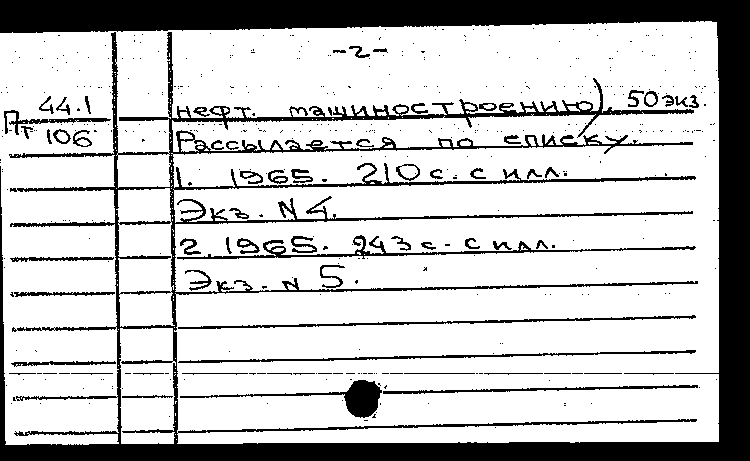 -2-
44.1
Пт 106
нефт. машиностроению). 50 экз.
Рассылается по списку.
1. 1965. 210 с. с илл.
Экз. N 4.
2. 1965. 243 с. с илл.
Экз. N 5.